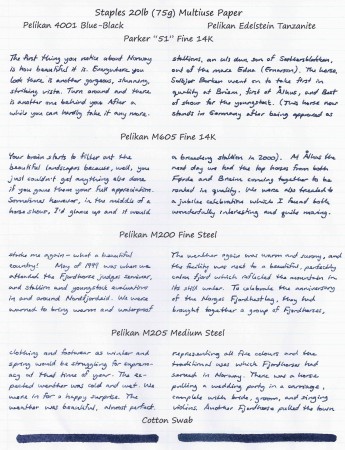 Staples 20lb (75g) Multiuse Paper
Pelikan 4001 Blue-Black Pelikan Edelstein Tanzanite
Parker "51" Fine 14K
The first thing you notice about Norway
is how beautiful it is. Everywhere you
look there is another gorgeous, stunning,
striking vista. Turn around and there
is another one behind you. After a
while you can hardly take it any more.
stallions, an old dun son of
out of the mare Edna (Ernarson). The horse,
Solbjør Borken went on to take first in
quality at Breim, first at Ålhus, and Best
of show for the youngstock. (This horse now
stands in Germany after being approved as
Pelikan M605 Fine 14K
Your brain starts to filter out the
beautiful landscapes because, well, you
just couldn't get anything else done
if you gave them your full appreciation.
Sometimes however, in the middle of a
horse show, I'd glance up and it would
a breeding stallion in 2000). At Ålhus the
next day we had the top horses from both
Fjørde and Breim coming together to be
ranked in quality. We were also treated to
a jubilee celebration which I found both
wonderfully interesting and quite moving.
Pelikan M200 Fine Steel
strike me again - what a beautiful
country! May of 1994 was when we
attended the Fjordhorse judges seminar,
and stallion and youngstock evaluations
in and around Nordfjordeid. We were
warned to bring warm and waterproof
The weather again was warm and sunny, and
the facility was next to a beautiful, perfectly
calm fjord which reflected the mountains in
its still water. To celebrate the anniversary
of the Norges Fjordhestlag, they had
brought together a group of Fjordhorses,
Pelikan M205 Medium Steel
clothing and footwear as winter and
spring would be struggling for suprem-
acy at that time of year. The ex-
pected weather was cold and wet. We
were in for a happy surprise. The
weather was beautiful, almost perfect.
representing all five colours and the
traditional uses which Fjordhorses had
served in Norway. There was a horse
pulling a wedding party in a carriage,
complete with bride, groom, and singing
violins. Another Fjordhorse pulled the town
Cotton Swab